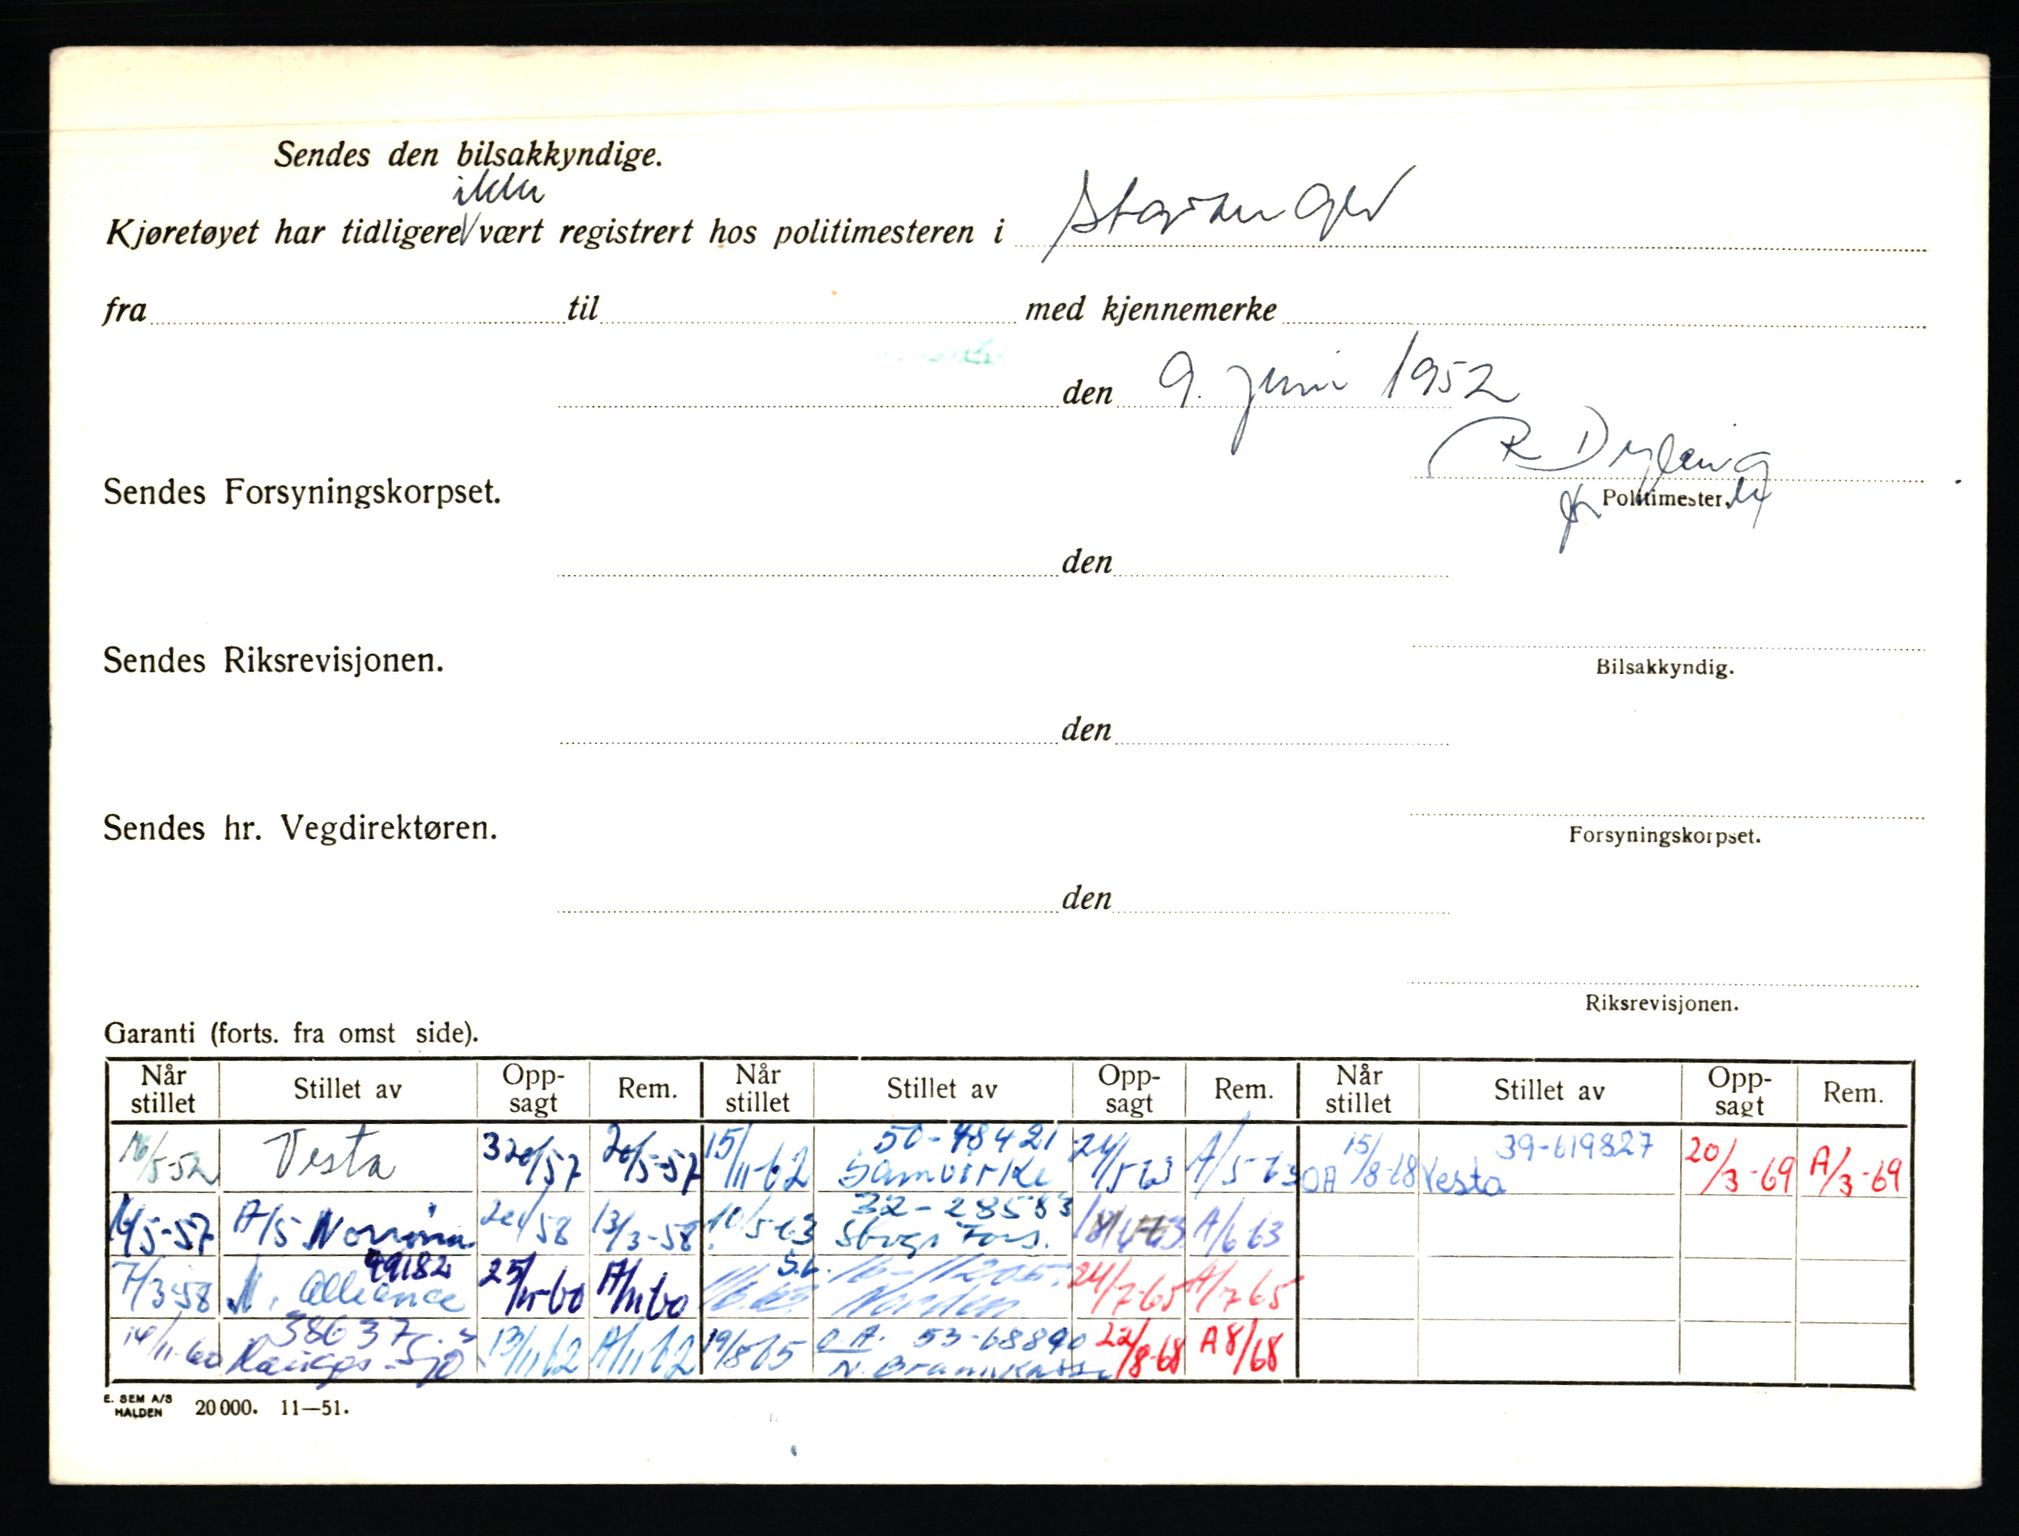 Sendes den bilsakkyndige.
ikke
Kjøretøyet har tidligere vært registrert hos politimesteren i Stavanger
fra til med kjennemerke
den 9. juni 1952
Sendes Forsyningskorpset.
Politimester.
den
Sendes Riksrevisjonen.
Bilsakkyndig.
den
Sendes hr. Vegdirektøren.
Forsyningskorpset.
den
Riksrevisjonen.
Garanti (forts. fra omst side).
Når stillet Stillet av Opp-sagt Rem. Når stillet Stillet av Opp-sagt Rem. Når stillet Stillet av Opp-sagt Rem.
50-48421 39-619827
16/5-52 Vesta 20/57 20/5-57 15/11-62 Samvirke 24/5-63 A/5-63 OA 15/8-68 Vesta 20/3-69 A/3-69
32-28583
A/5 Norrøna 13/3-58 10/5-63 Stvgs Fors. A/6 63
99182
7/3-58 N. Alliance 25/11-60 A/11 60 Norden 24/7-65 A/7 65
38637 O.A. 53-68890
13/11 62 A/11 62 19/8-65 N. Brannkasse 22/8-68 A 8/68
E. SEM A/S
HALDEN 20 000. 11—51.